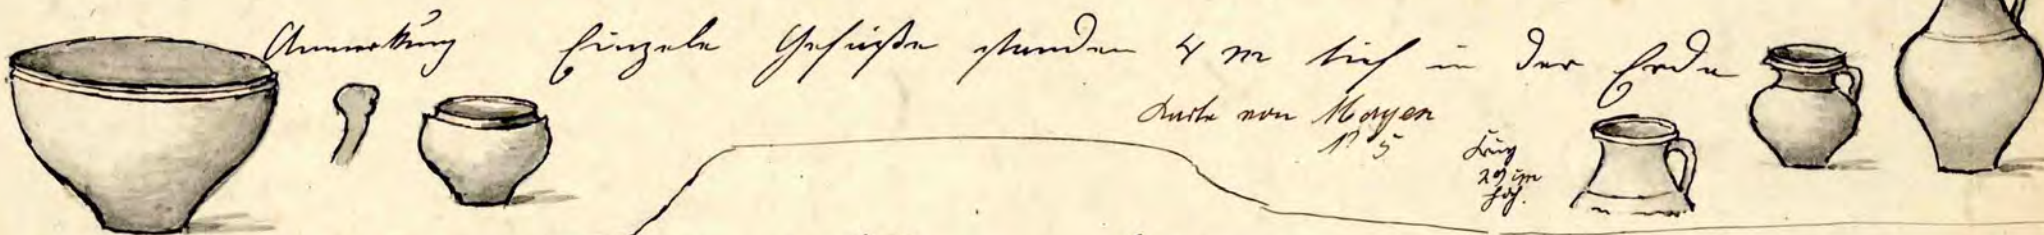 Anmerkung Einzele Gefäße standen 4 m tief in der Erde
Karte von Mayen
№ 5
Krug
29 cm
hoch.